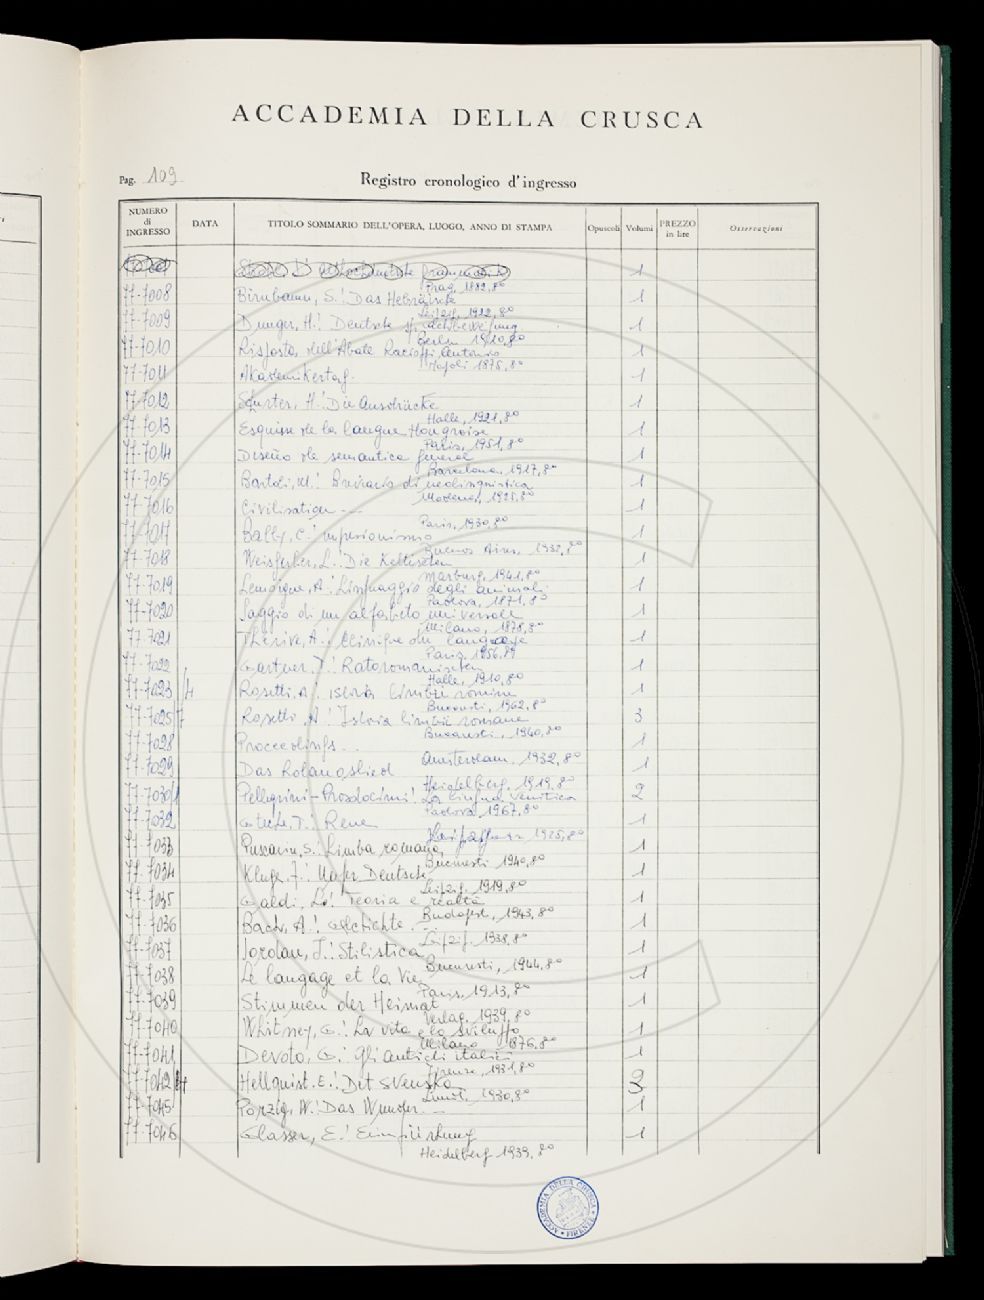 ACCADEMIA DELLA CRUSCA
Pag. 109
Registro cronologico d'ingresso
NUMERO di INGRESSO DATA TITOLO SOMMARIO DELL'OPERA, LUOGO, ANNO DI STAMPA Opuscoli Volumi PREZZO in lire Osservazioni
1
Prag, 1882, 8°
77-7008 Birnbaum, S.: Das Hebräische 1
Leipzig, 1922, 8°
77-7009 Dunger, H.: Deutsche 1
Berlin 1910, 8°
77-7010 Risposta dell'Abate Racioppi Antonio 1
Napoli 1875, 8°
77-7011 Akademikertag. 1
77-7012 H.: Die Ausdrücke 1
Halle, 1921, 8°
77-7013 Esquisse de la langue Hongroise 1
Paris, 1951, 8°
77-7014 Diseño de semantica general 1
Barcelona, 1917, 8°
77-7015 Bartoli, M.: Breviario di neolinguistica 1
Modena, 1925, 8°
77-7016 Civilisation -- 1
Paris, 1930, 8°
77-7017 Bally, C.: impresionismo 1
Buenos Aires, 8°
77-7018 Weisgerber, L.: Die Keltischen 1
Marburg, 1941, 8°
77-7019 Lemoigne, A.: Linguaggio degli animali 1
Padova, 1871, 8°
77-7020 Saggio di un alfabeto universale 1
Milano, 1878, 8°
77-7021 Thérive, A.: Clinique du langage 1
Paris, 1956, 8°
77-7022 Gartner, T.: Ratoromanischen 1
Halle, 1910, 8°
77-7023/4 Rosetti, A.: istoria limbii romine 1
Bucuresti, 1962, 8°
77-7025/7 Rosetti, A.: Istoria limbii romane 3
Bucuresti, 1940, 8°
77-7028 Proceedings -- 1
Amsterdam, 1932, 8°
77-7029 Das Rolandslied 1
Heidelberg, 1919, 8°
77-7030/1 Pellegrini-Prosdocimi: La lingua venetica 2
Padova 1967, 8°
77-7032 T.: Rene 1
1925, 8°
77-7033 Puscariu, S.: Limba romana, 1
Bucuresti 1940, 8°
77-7034 Kluge, F.: Unser Deutsch 1
Leipzig, 1919, 8°
77-7035 Galdi, L.: Teoria e realtà 1
Budapest, 1943, 8°
77-7036 Bach, A.: Geschichte -- 1
Leipzig, 1938, 8°
77-7037 Iordan, J.: Stilistica 1
Bucuresti, 1944, 8°
77-7038 Le langage et la Vie 1
Paris, 1913, 8°
77-7039 Stimmen der Heimat 1
Verlag, 1939, 8°
77-7040 Whitney, G.: La vita e lo sviluppo 1
Milano 1876, 8°
77-7041 Devoto, G.: Gli antichi italici 1
Firenze, 1931, 8°
77-7042/4 Hellquist. E.: Det svenska 3
Lund, 1930, 8°
77-7045 Porzig, W.: Das Wunder -- 1
77-7046 Glasser, E.: Einführung 1
Heidelberg 1939, 8°
ACCADEMIA DELLA CRUSCA • FIRENZE